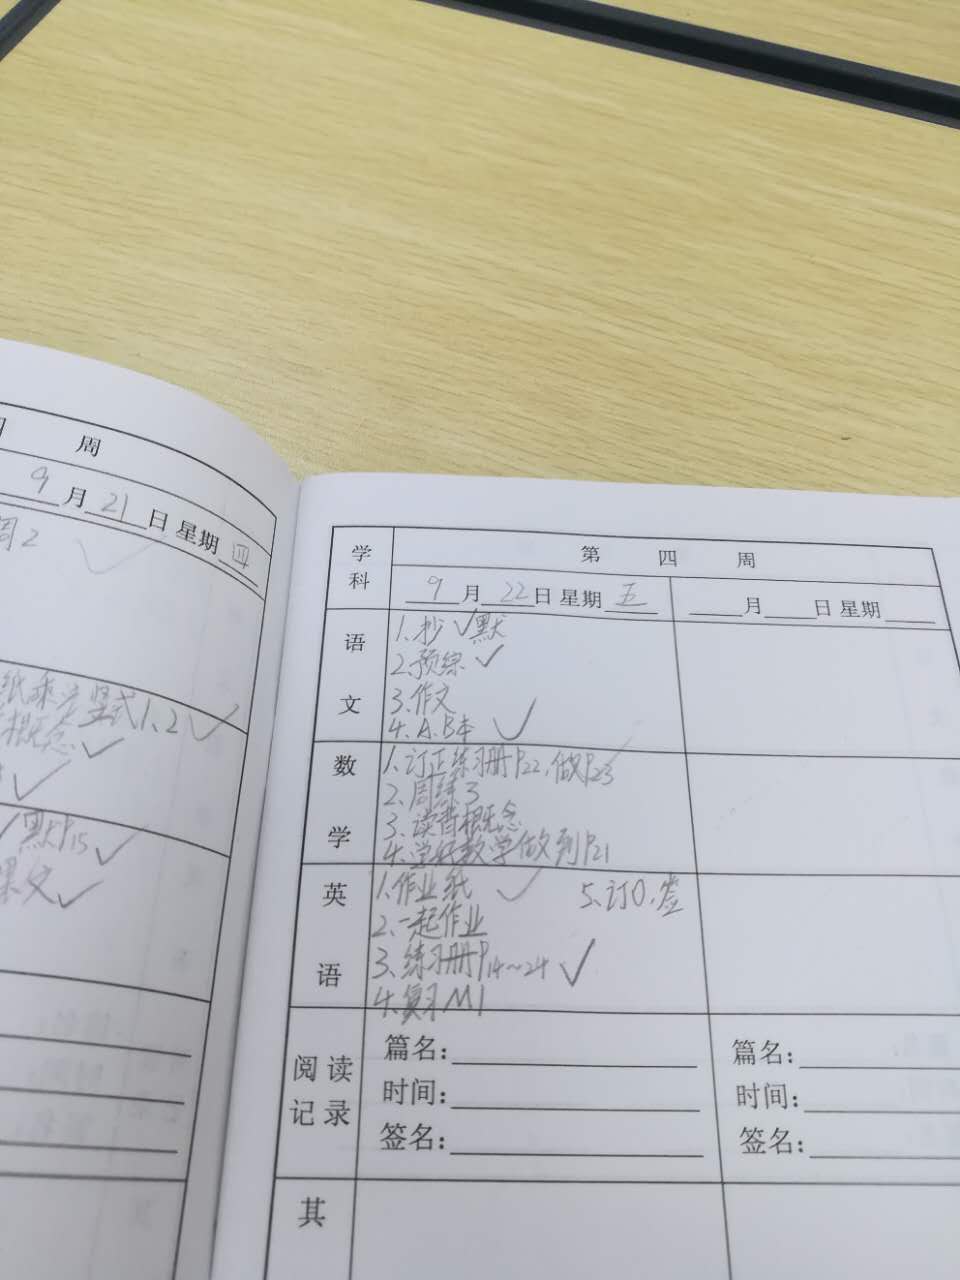 周
9月21日 星期四
周2
纸乘法竖式1、2
概念
默P15
课文
学科
第 四 周
9月22日 星期五
月 日 星期
语文
1.抄 默
2.预综
3.作文
4.A.B本
数学
1、订正练习册P22,做P23
2、周练3
3、读背概念
4.学好数学做到P21
英语
1.作业纸 5、订0,签
2、一起作业
3、练习册P14~24
4.复习M1
阅读记录
篇名: 篇名:
时间: 时间:
签名: 签名:
其